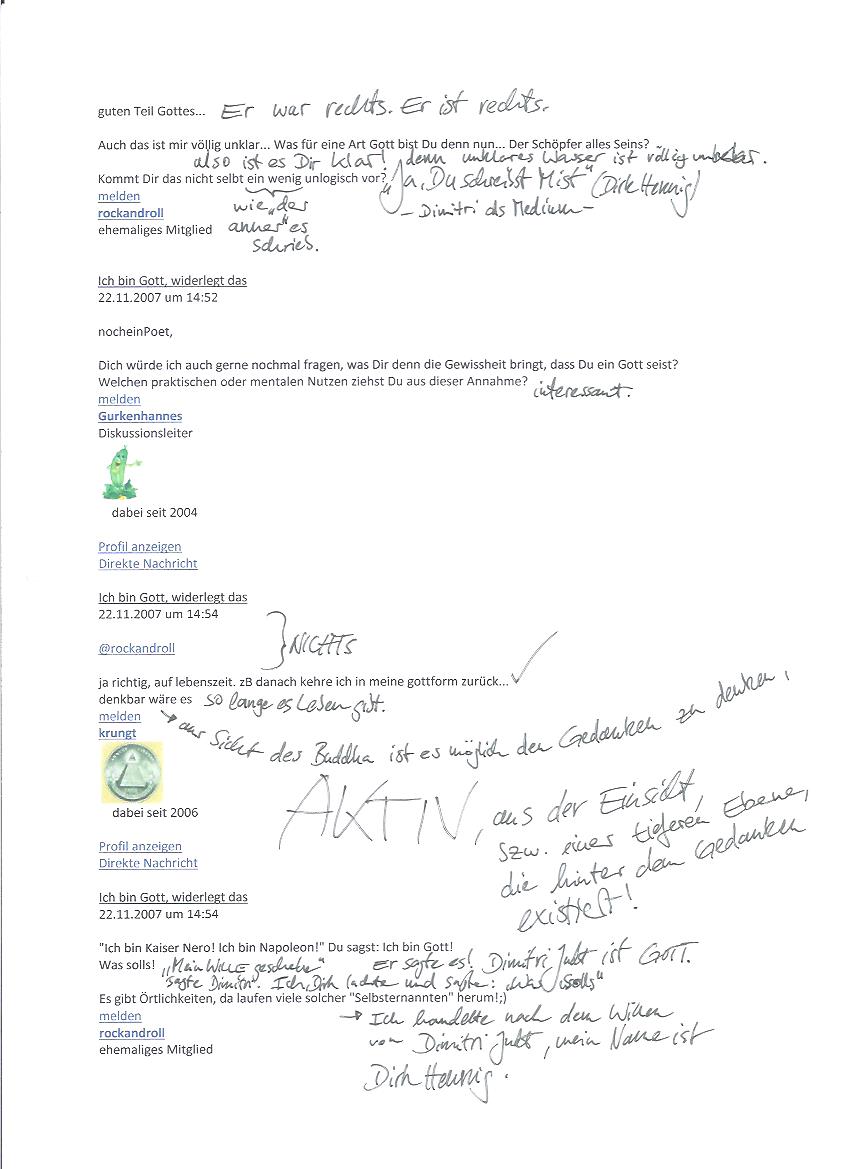 guten Teil Gottes... Er war rechts. Er ist rechts.
Auch das ist mir völlig unklar... Was für eine Art Gott bist Du denn nun... Der Schöpfer alles Seins?
also ist es Dir klar! denn unklares Wasser ist völlig
Kommt Dir das nicht selbt ein wenig unlogisch vor? Ja, „Du schreibst Mist" (Dirk Hennig)
melden
wie „der
- Dimitri als Medium -
rockandroll
ehemaliges Mitglied
anner" es
schrieb.
Ich bin Gott, widerlegt das
22.11.2007 um 14:52
nocheinPoet,
Dich würde ich auch gerne nochmal fragen, was Dir denn die Gewissheit bringt, dass Du ein Gott seist?
Welchen praktischen oder mentalen Nutzen ziehst Du aus dieser Annahme? interessant.
melden
Gurkenhannes
Diskussionsleiter
dabei seit 2004
Profil anzeigen
Direkte Nachricht
Ich bin Gott, widerlegt das
22.11.2007 um 14:54
@rockandroll
} NICHTS
ja richtig, auf lebenszeit. zB danach kehre ich in meine gottform zurück... ✓
denkbar wäre es so lange es Leben gibt.
melden
krungt
aus Sicht des Buddha ist es möglich den Gedanken zu denken,
dabei seit 2006
AKTIV, aus der Einsicht,
bzw. einer tieferen Ebene,
die hinter dem Gedanken
existiert!
Profil anzeigen
Direkte Nachricht
Ich bin Gott, widerlegt das
22.11.2007 um 14:54
"Ich bin Kaiser Nero! Ich bin Napoleon!" Du sagst: Ich bin Gott!
Was solls! „Mein WILLE geschehe" Er sagte es! Dimitri Jukt ist GOTT.
sagte Dimitri. Ich, Dirk lachte und sagte: „Was solls"
Es gibt Örtlichkeiten, da laufen viele solcher "Selbsternannten" herum!;)
melden
rockandroll
ehemaliges Mitglied
→ Ich handelte nach dem Willen
von Dimitri Jukt, mein Name ist
Dirk Hennig.